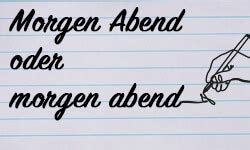 Morgen Abend
oder
morgen abend